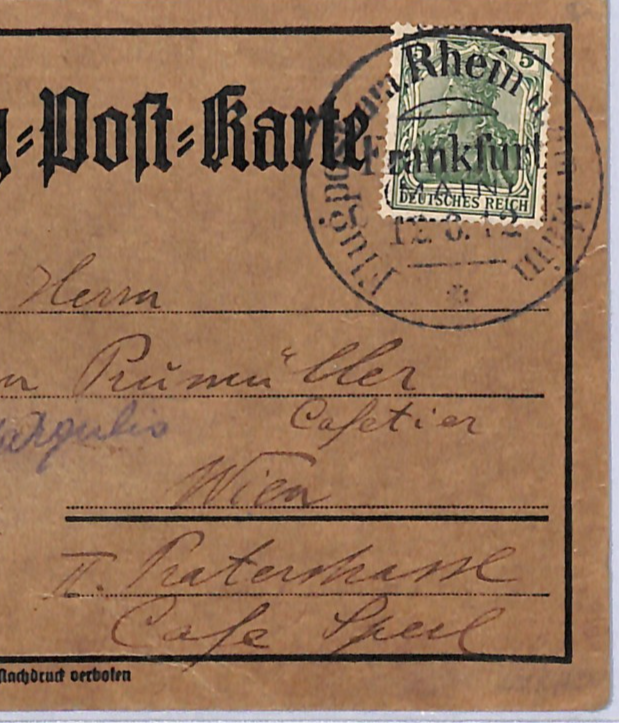 Flugpost am Rhein u. am Main
5 5
Frankfurt
(MAIN)
DEUTSCHES REICH
12. 6. 12
=Post=Karte
Herrn
Cafetier
Wien
II. Praterstrasse
Cafe Sperl
Nachdruck verboten